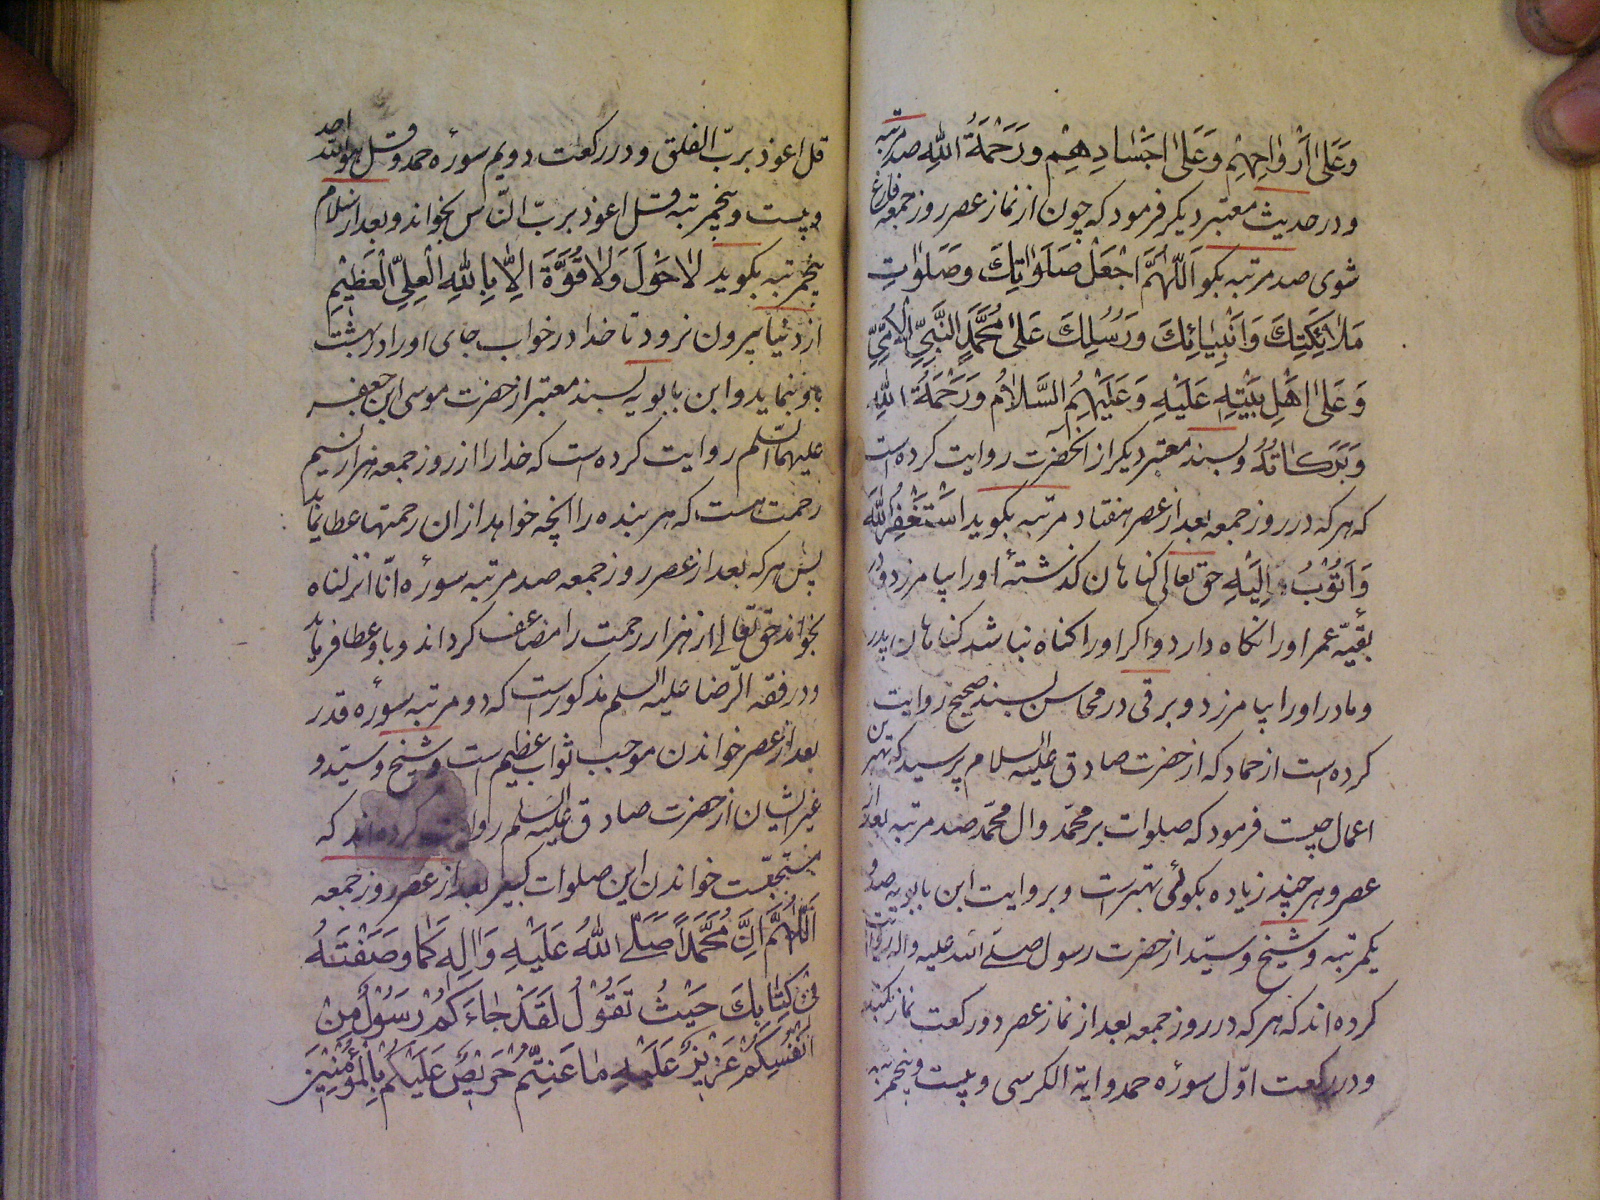 وَعَلىٰ اَرْواحِهِمْ وَعَلىٰ اَجْسادِهِمْ وَرَحْمَةُ اللهِ صد مرتبه
و در حدیث معتبر دیکر فرمود که چون از نماز عصر روز جمعه فارغ
شوی صد مرتبه بکو اَللّٰهُمَّ اجْعَلْ صَلَواتِكَ وَصَلَواتِ
مَلائِکَتِكَ وَاَنْبِیائِكَ وَرُسُلِكَ عَلىٰ مُحَمَّدٍ النَّبِيِّ الْاُمِّيِّ
وَعَلىٰ اَهْلِ بَيْتِهِ عَلَيْهِ وَعَلَيْهِمُ السَّلامُ وَرَحْمَةُ اللهِ
وَبَرَكاتُهُ و بسند معتبر دیکر از آنحضرت روایت کرده است
که هر که در روز جمعه بعد از عصر هفتاد مرتبه بکوید اَسْتَغْفِرُ اللهَ
وَاَتُوْبُ اِلَيْهِ حق تعالی کناهان کذشتهٔ او را بیامرزد و در
بقیّه عمر او را نکاه دارد و اکر او را کناه نباشد کناهان پدر
و مادر او را بیامرزد و برقی در محاسن بسند صحیح روایت
کرده است از حماد که از حضرت صادق علیه السلام پرسید که بهترین
اعمال چیست فرمود که صلوات بر محمّد و ال محمّد صد مرتبه بعد از
عصر و هر چند زیاده بکوئی بهتر است و بروایت ابن بابویه صد و
یکمرتبه و شیخ و سیّد از حضرت رسول صلّی الله علیه واله روایت
کرده اند که هر که در روز جمعه بعد از نماز عصر دو رکعت نماز بکند
و در رکعت اوّل سورهٔ حمد و ایة الکرسی و بیست و پنجمرتبه
قل اعوذ بربّ الفلق و در رکعت دویم سورهٔ حمد و قل هو الله احد
و بیست و پنجمرتبه قل اعوذ بربّ النّاس بخواند و بعد از سلام
پنجمرتبه بکوید لاحَوْلَ وَلاقُوَّةَ اِلّا بِاللهِ الْعَلِيِّ الْعَظِيْمِ
از دنیا بیرون نرود تا خدا در خواب جای او را در بهشت
باو بنماید و ابن بابویه بسند معتبر از حضرت موسی ابن جعفر
علیهما السّلم روایت کرده است که خدا را از روز جمعه هزار نسیم
رحمت هست که هر بنده را انچه خواهد از ان رحمتها عطا نماید
پس هر که بعد از عصر روز جمعه صد مرتبه سورهٔ انّا انزلناه
بخواند حق تعالی از هزار رحمت را مضاعف کرداند و باو عطا فرماید
و در فقه الرّضا علیه السلم مذکور است که دو مرتبه سورهٔ قدر
بعد از عصر خواندن موجب ثواب عظیم است و شیخ و سیّد و
غیر ایشان از حضرت صادق علیه السّلم روایت کرده اند که
مستحبّست خواندن این صلوات کبیر بعد از عصر روز جمعه
اَللّٰهُمَّ اِنَّ مُحَمَّداً صَلَّى اللهُ عَلَيْهِ وَاٰلِهِ كَما وَصَفْتَهُ
فِيْ كِتابِكَ حَيْثُ تَقُوْلُ لَقَدْ جاءَكُمْ رَسُوْلٌ مِنْ
اَنْفُسِكُمْ عَزِيْزٌ عَلَيْهِ ما عَنِتُّمْ حَرِيْصٌ عَلَيْكُمْ بِالْمُؤْمِنِيْنَ